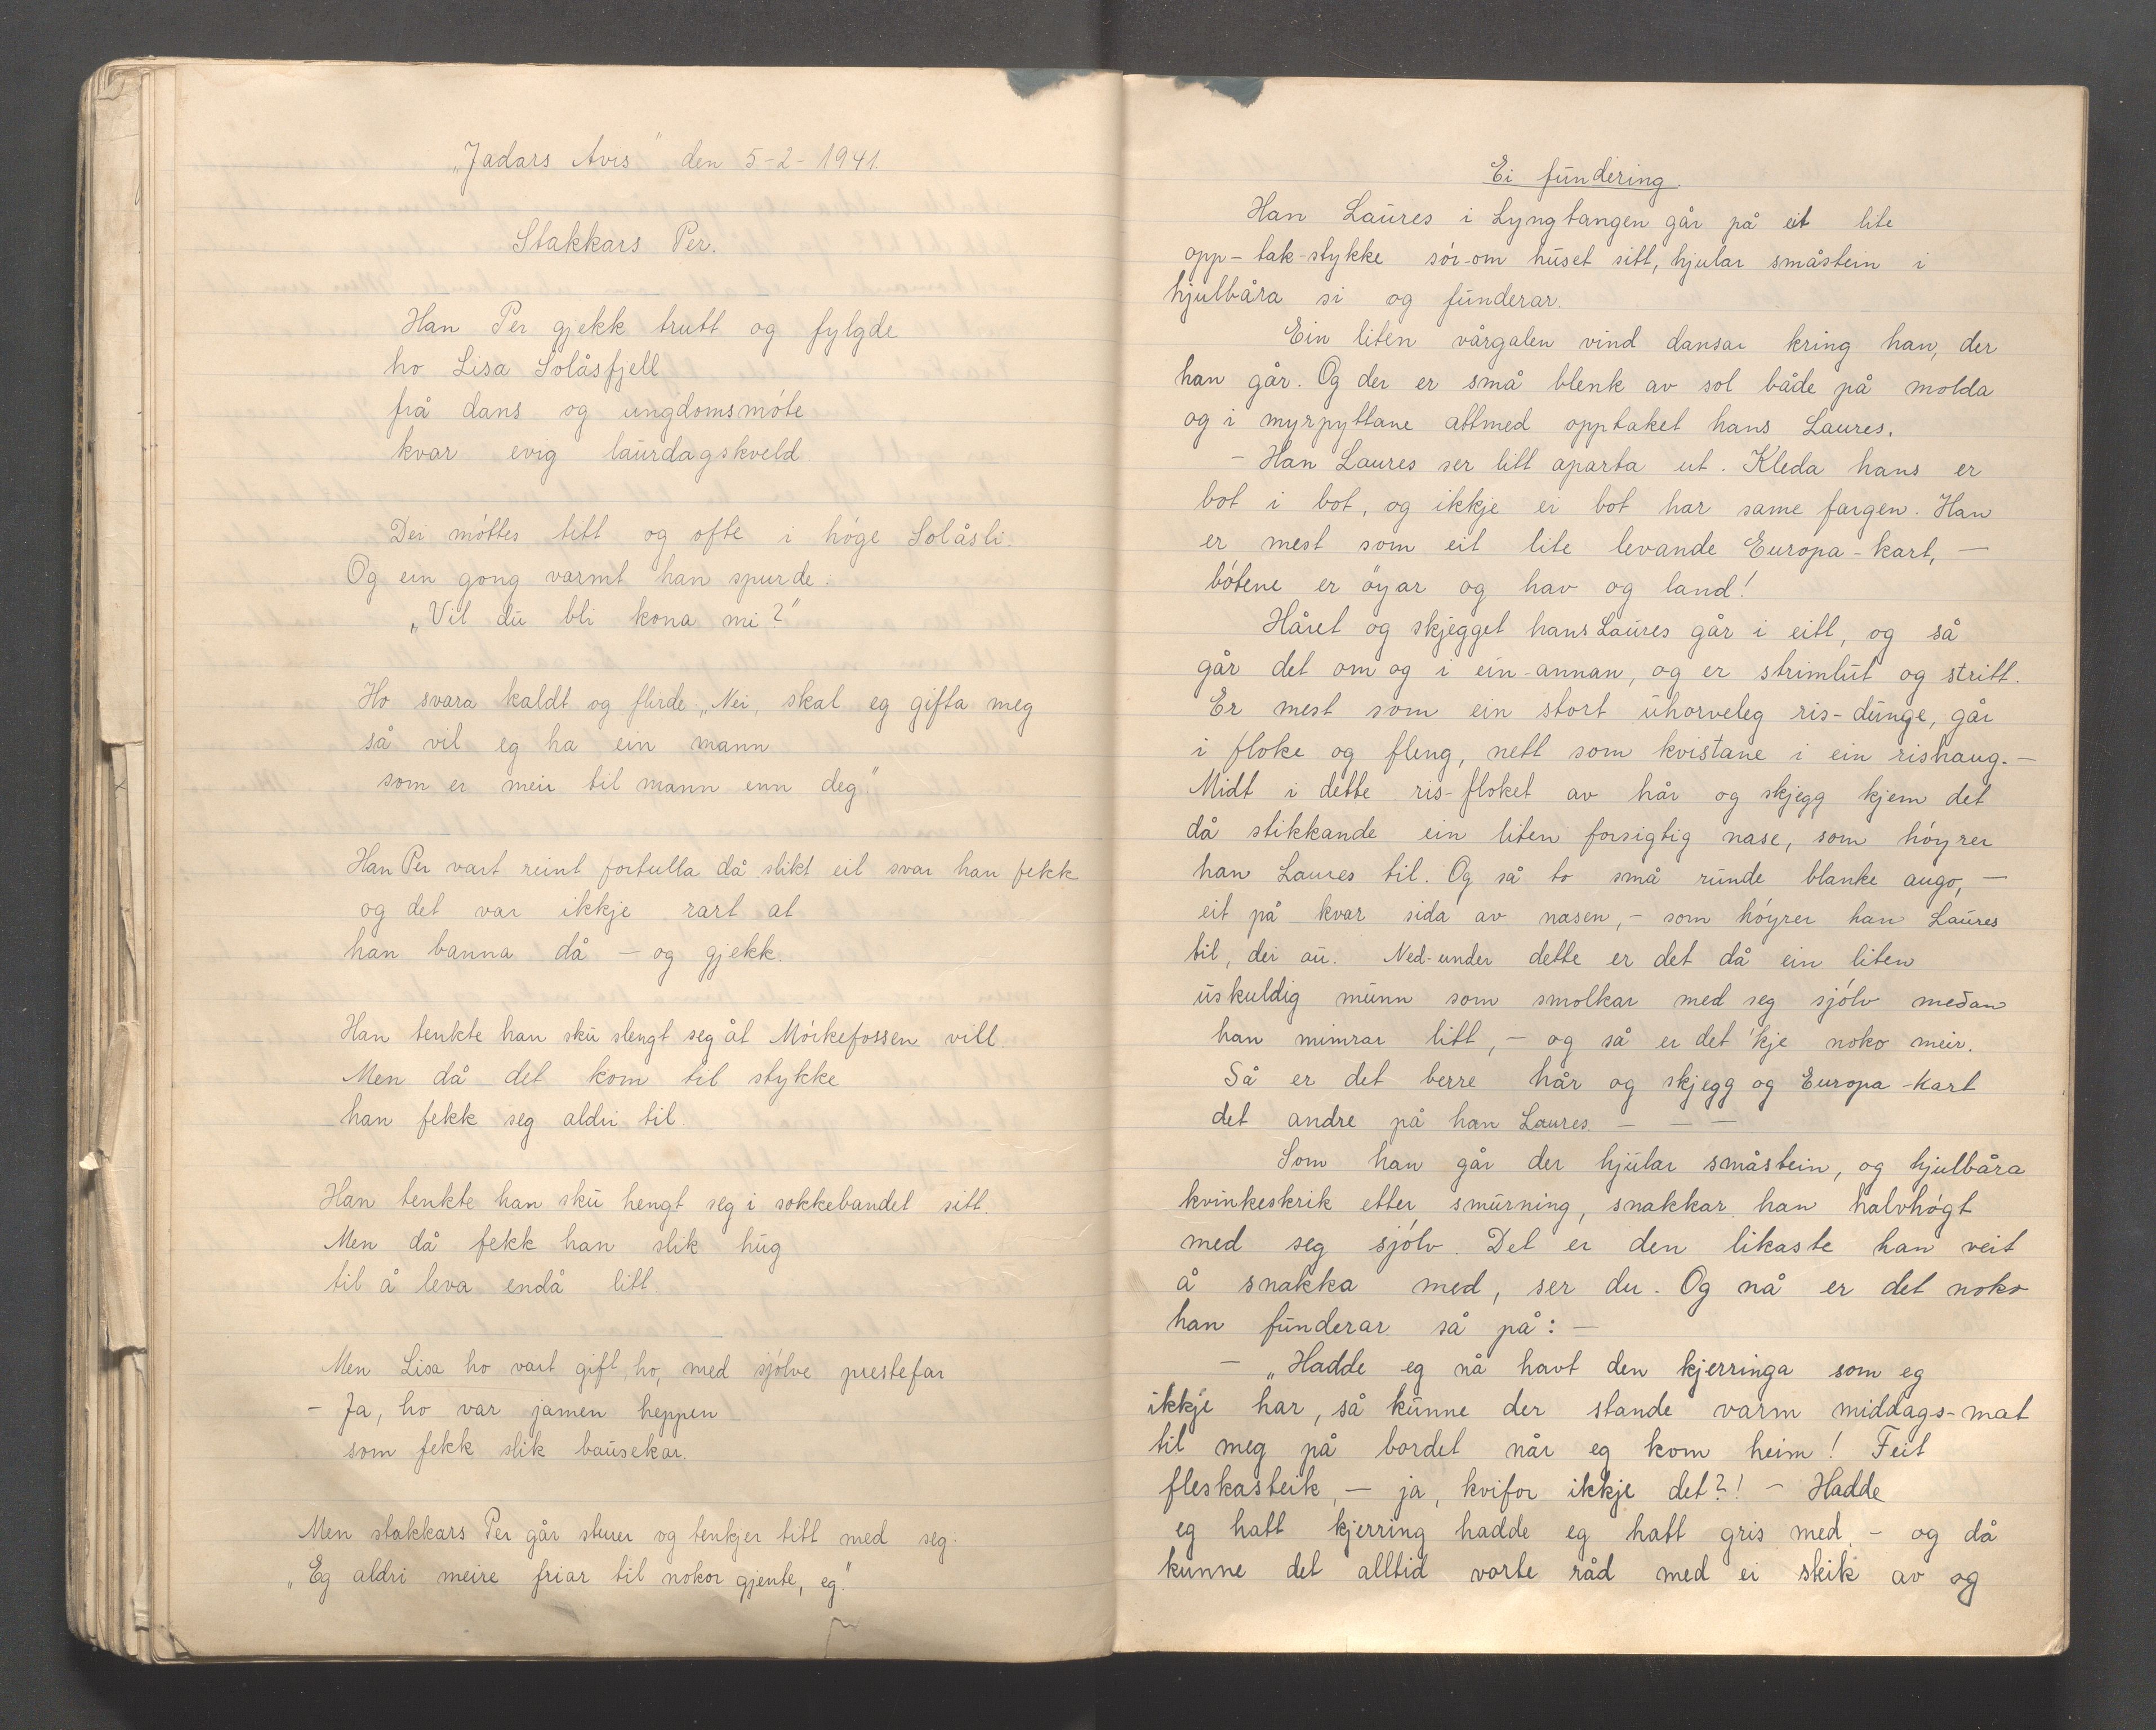 „Jadars Avis" den 5-2-1941.
Stakkars Per.
Han Per gjekk trutt og fylgde
ho Lisa Solåsfjell
frå dans og ungdomsmóte
kvar evig laurdagskveld.
Dei móttes titt og ofte i hóge Solåsli.
Og ein gong varmt han spurde:
„Vil du bli kona mi?"
Ho svara kaldt og flirde: „Nei, skal eg gifta meg
så vil eg ha ein mann
som er meir til mann enn deg"
Han Per vart reint fortulla då slikt eit svar han fekk
og det var ikkje rart at
han banna då — og gjekk.
Han tenkte han sku slengt seg åt Mórkefossen vill.
Men då det kom til stykke
han fekk seg aldri til.
Han tenkte han sku hengt seg i sokkebandet sitt.
Men då fekk han slik hug
til å leva endå litt.
Men Lisa ho vart gift, ho, med sjólve prestefar
- Ja, ho var jamen heppen
som fekk slik bausekar.
Men stakkars Per går sturer og tenkjer titt med seg:
„Eg aldri meire friar til nokor gjente, eg."
Ei fundering.
Han Laures i Lyngtangen går på eit lite
opp-tak-stykke sór-om huset sitt, hjular småstein i
hjulbåra si og funderar.
Ein liten vårgalen vind dansar kring han, der
han går. Og der er små blenk av sol både på molda
og i myrpyttane attmed opptaket hans Laures.
- Han Laures ser litt aparta ut. Kleda hans er
bot i bot, og ikkje ei bot har same fargen. Han
er mest som eit lite levande Europa-kart, —
bótene er óyar og hav og land!
Håret og skjegget hans Laures går i eitt, og så
går det om og i ein-annan, og er strimlut og stritt.
Er mest som ein stort uhorveleg ris-dunge, går
i floke og fleng, nett som kvistane i ein rishaug. —
Midt i dette ris-floket av hår og skjegg kjem det
då stikkande ein liten forsigtig nase, som hóyrer
han Laures til. Og så to små runde blanke augo, —
eit på kvar sida av nasen, — som hóyrer han Laures
til, dei au. Ned-under dette er det då ein liten
uskuldig munn som smolkar med seg sjólv medan
han mimrar litt, — og så er det 'kje noko meir.
Så er det berre hår og skjegg og Europa-kart
det andre på han Laures. — — —
Som han går der hjular småstein, og hjulbåra
kvinkeskrik etter smurning, snakkar han halvhógt
med seg sjólv. Det er den likaste han veit
å snakka med, ser du. Og nå er det noko
han funderar så på: —
— „Hadde eg nå havt den kjerringa som eg
ikkje har, så kunne der stande varm middags-mat
til meg på bordet når eg kom heim! Feit
fleskasteik, — ja, kvifor ikkje det?! — Hadde
eg hatt kjerring hadde eg hatt gris med, — og då
kunne det alltid vorte råd med ei steik av og